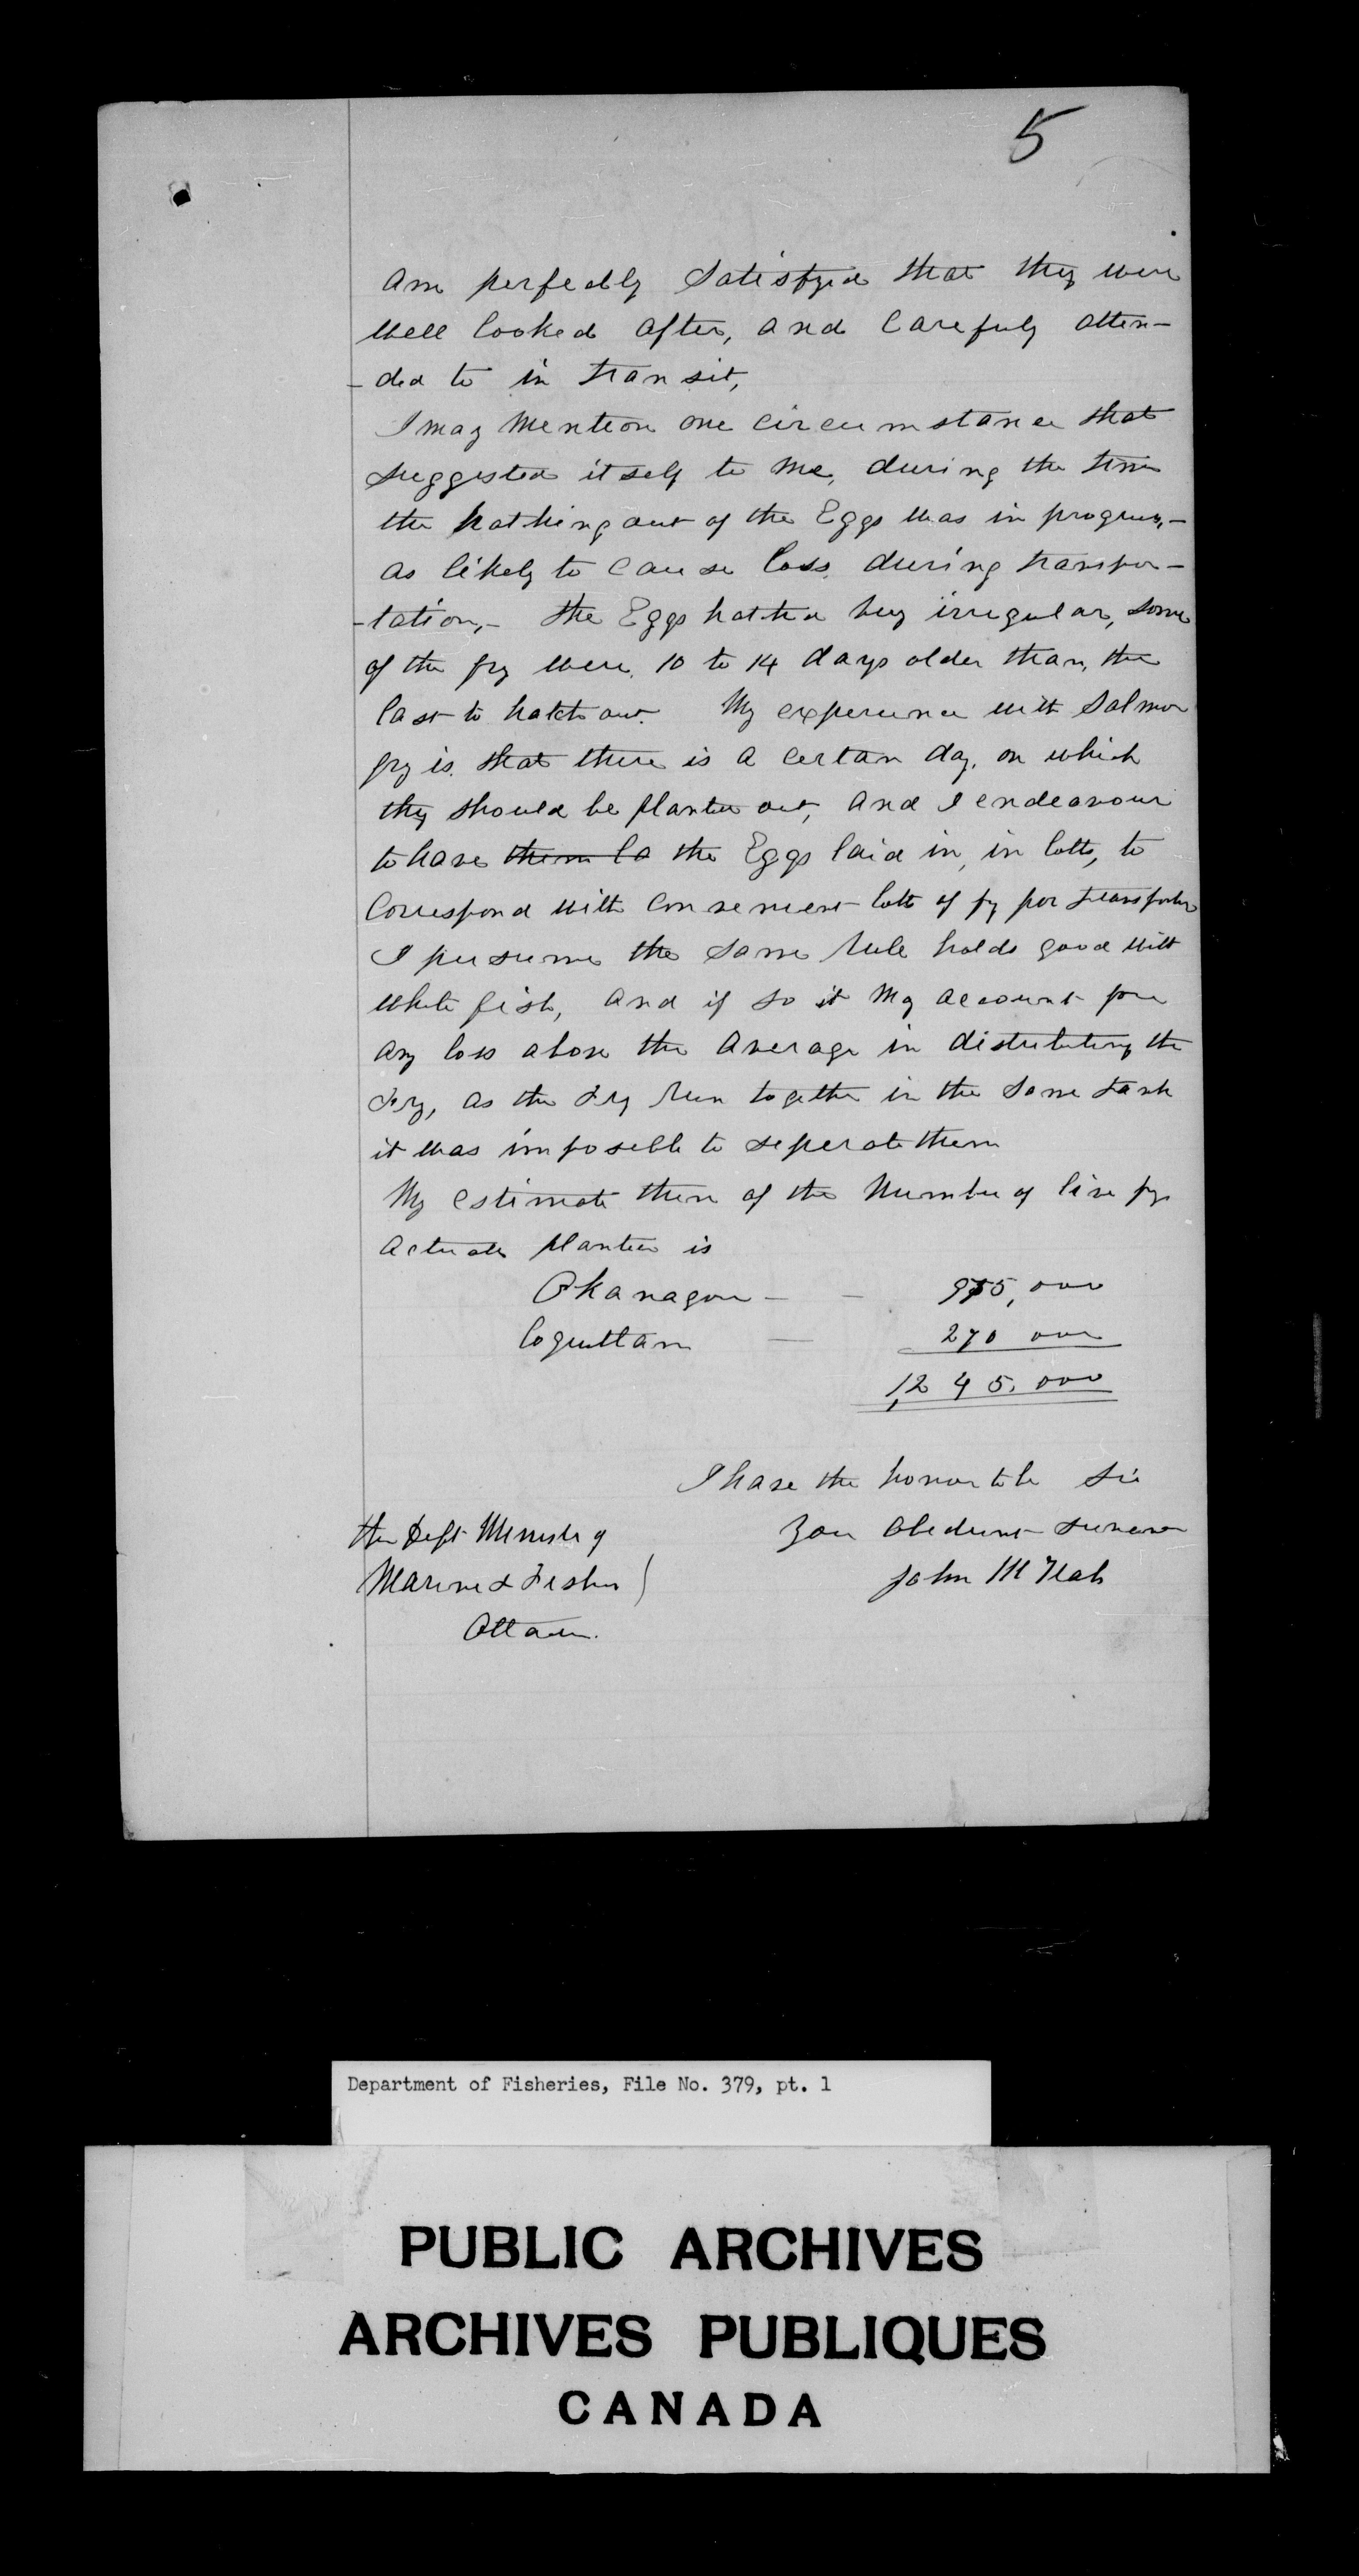 5
am perfectly satisfyed that they were
well looked after, and carefuly atten-
-ded to in transit,
I may mention one circumstance that
suggested itself to me, during the time
the hatching out of the Eggs was in progress,-
as likely to cause loss, during transpor-
-tation,- the Eggs hatched very irregular, some
of the fry were, 10 to 14 days older than, the
last to hatch out. My experience with Salmon
fry is, that there is a certan day, on which
they should be planted out, and I endeavour
to have them la the Eggs laid in, in lotts, to
Correspond with convenient lotts of fry for
I presume the same rule holds good with
white fish, and if so it my account for
any loss above the average in distributing the
Fry, as the Fry run together in the same tank
it was imposeble to seperate them
My estimate then of the number of live fry
actually planted is
Okanagon - - 975,000
Coquitlam — 270 000
1,245,000
I have the honor to be Sir
Your obedient servant
John McNab
The Dept Minister of
Marine & Fisheries )
Ottawa.
Department of Fisheries, File No. 379, pt. 1
PUBLIC ARCHIVES
ARCHIVES PUBLIQUES
CANADA